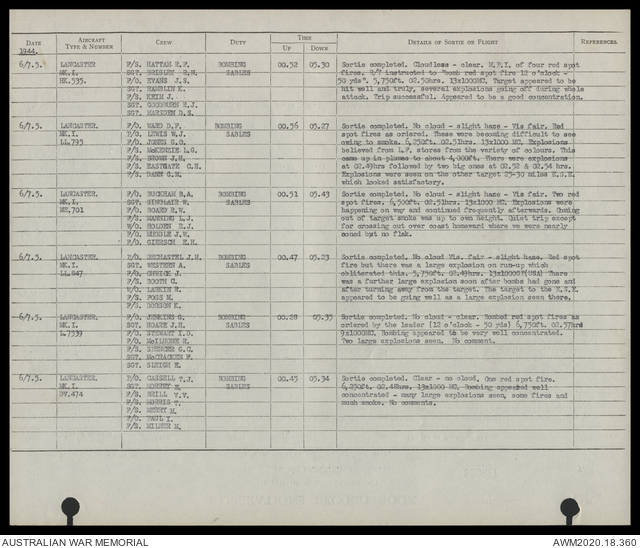 DATE AIRCRAFT TYPE & NUMBER CREW DUTY TIME DETAILS OF SORTIE OR FLIGHT REFERENCES.
1944. UP DOWN
6/7.5. LANCASTER F/S. HATTAM R.F. BOMBING 00.52 05.30 Sortie completed. Cloudless - clear. M.P.I. of four red spot
MK.I. SGT. BRISLEY R.H. SABLES fires. R/T instructed to "bomb red spot fire 12 o'clock -
HK.535. F/O. EVANS J.S. 50 yds". 5,750ft. 02.50hrs. 13x1000MC. Target appeared to be
SGT. HAMBLIN K. hit well and truly, several explosions going off during whole
F/S. KEIM J. attack. Trip successful. Appeared to be a good concentration.
SGT. GOODBURN R.J.
SGT. MARSDEN D.S.
6/7.5. LANCASTER. P/O. WARD D.F. BOMBING 00.56 05.27 Sortie completed. No cloud - slight haze - Vis fair. Red
MK.I. F/O. LEWIS W.J. SABLES spot fires as ordered. These were becoming difficult to see
LL.795 P/O. JONES G.O. owing to smoke. 6,250ft. 02.51hrs. 13x1000 MC. Explosions
F/S. McKENZIE L.G. believed from L.F. stores from the variety of colours. This
F/S. BROWN J.H. came up in plumes to about 4,000ft. There were explosions
F/S. EASTGATE C.H. at 02.49hrs followed by two big ones at 02.52 & 02.54 hrs.
F/S. DANN C.M. Explosions were seen on the other target 25-30 miles E.S.E.
which looked satisfactory.
6/7.5. LANCASTER. F/O. BUCKHAM B.A. BOMBING 00.51 05.43 Sortie completed. No cloud - slight haze - Vis fair. Two red
MK.I. SGT. SINCLAIR W. SABLES spot fires. 6,500ft. 02.51hrs. 13x1000 MC. Explosions were
ME.701 F/O. BOARD R.W. happening on way and continued frequently afterwards. Coming
F/O. MANNING L.J. out of target smoke was up to own height. Quiet trip except
W/O. HOLDEN E.J. for crossing out over coast homeward where we were nearly
F/O. MUDDLE J.W. coned but no flak.
F/O. GIERSCH E.H.
6/7.5. LANCASTER P/O. BECHASTEL J.H. BOMBING 00.47 05.23 Sortie completed. No cloud Vis. fair - slight haze. Red spot
MK.I. SGT. WESTERN A. SABLES fire but there was a large explosion on run-up which
LL.847 F/O. J. obliterated this. 5,750ft. 02.49hrs. 13x1000GP(USA) There
F/S. BOOTH C. was a further large explosion seen after bombs had gone and
W/O. LARKIN R. after turning away from the target. The target to the E.S.E.
F/S. POGS M. appeared to be going well as a large explosion seen there.
F/S. DOBSON K.
6/7.5. LANCASTER P/O. JENKINS G. BOMBING 00.28 05.35 Sortie completed. No cloud - clear. Bombed red spot fires as
MK.I. SGT. HOARE J.H. SABLES ordered by the leader (12 o'clock - 50 yds) 6,750ft. 02.57hrs
L.7539 F/O. STEWART I.D. 9x1000MC. Bombing appeared to be very well concentrated.
F/O. McILHONE R. Two large explosions seen. No comment.
F/S. SPENCER G.C.
SGT. McCRACKEN F.
SGT. SLEIGH E.
6/7.5. LANCASTER P/O. CASSELL T.J. BOMBING 00.45 05.34 Sortie completed. Clear - no cloud. One red spot fire.
MK.I. SGT. E. SABLES 6,250ft 02.48hrs. 13x1000 MC. Bombing appeared well
DV.474 F/S. BRILL V.V. concentrated - many large explosions seen, some fires and
F/S. MORRIS T. much smoke. No comments.
F/S. M.
F/O. PAUL I.
F/S. MILNER M.
AUSTRALIAN WAR MEMORIAL AWM2020.18.360